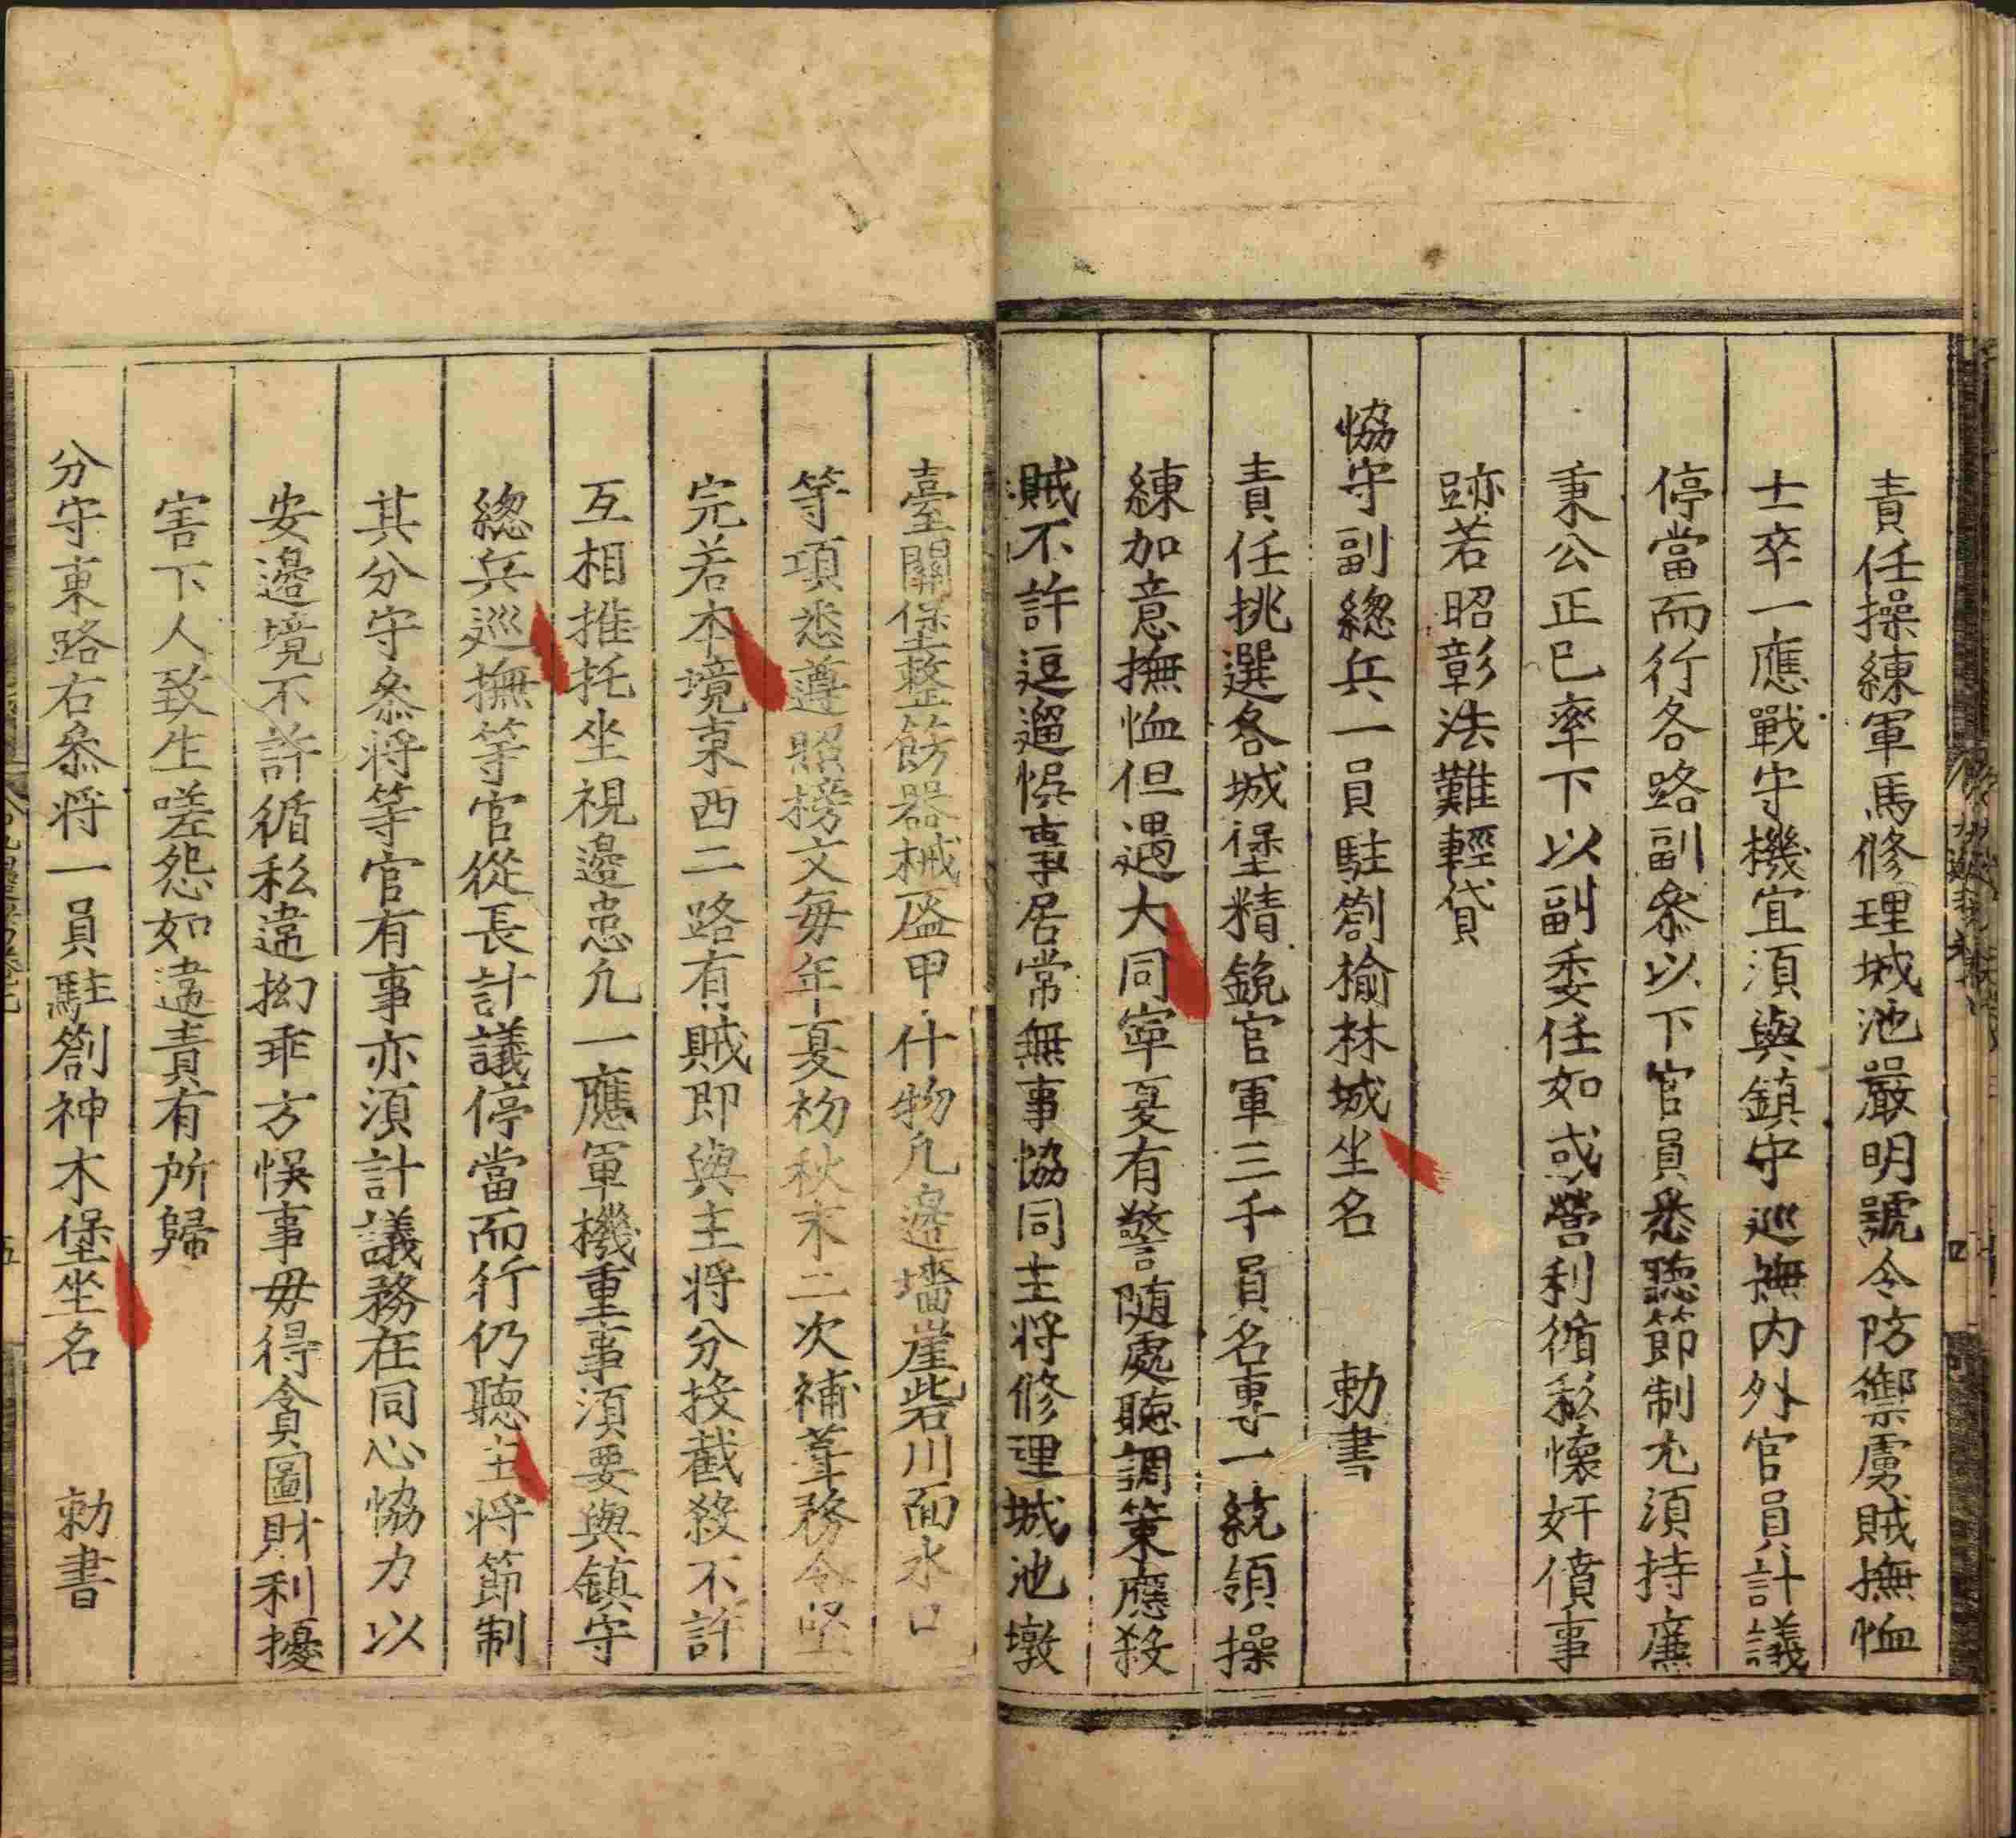 責任操練軍馬修理城池嚴明號令防禦虜賊撫恤
士卒一應戰守機宜須與鎮守巡撫内外官員計議
停當而行各路副叅以下官員悉聽節制尤須持廉
秉公正已率下以副委任如或營利循私懷奸僨事
跡若昭彰法難輕貸
恊守副總兵一員駐劄榆林城坐名 勅書
責任挑選各城堡精銳官軍三千員名專一統領操
練加意撫恤但遇大同寧夏有警随處聽調策應殺
賊不許逗遛悞事居常無事恊同主将修理城池墩
臺關堡整飭器械盔甲什物凢邊墻崖砦川面水口
等項悉遵照榜文毎年夏初秋末二次補葺務令堅
完若本境東西二路有賊即與主将分投截殺不許
互相推托坐視邊患凢一應軍機重事須要與鎮守
總兵巡撫等官從長計議停當而行仍聽主将節制
其分守叅将等官有事亦須計議務在同心恊力以
安邊境不許循私違拗乖方悞事毋得貪圖財利擾
害下人致生嗟怨如違責有所歸
分守東路右叅将一員駐劄神木堡坐名 勅書